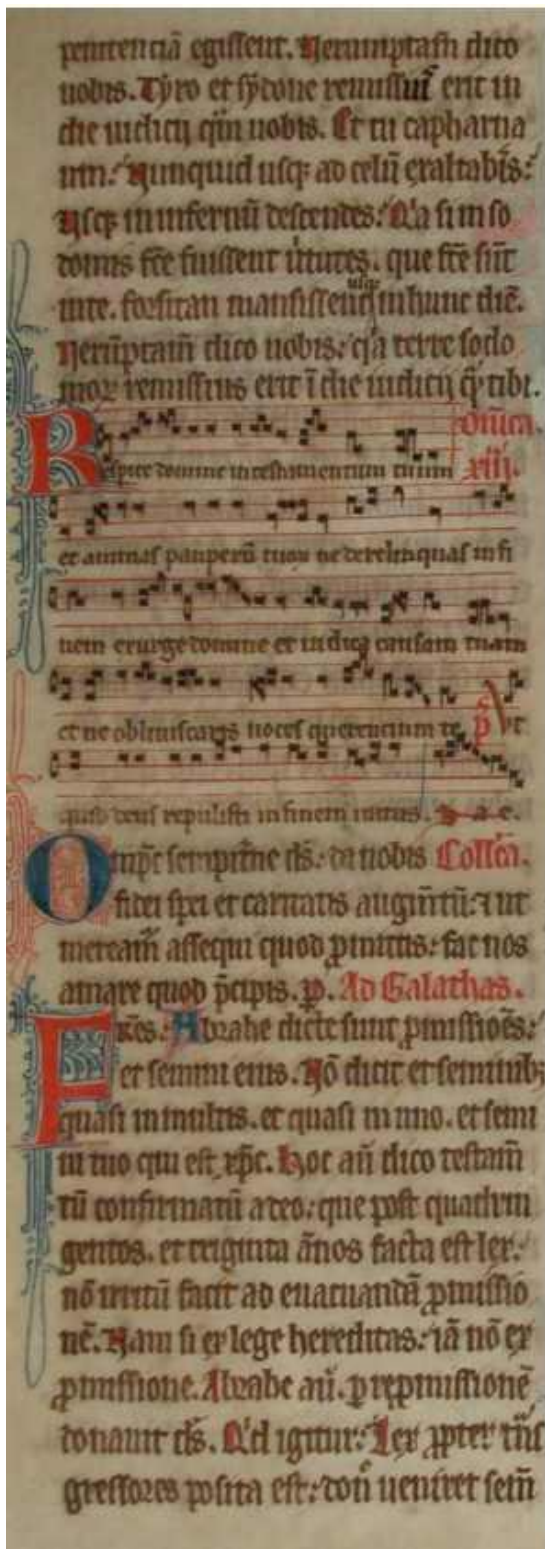 penitenciā egissent. Verumptam̄ dico
uobis. Tyro et sydone remissiu᷑ erit in
die iudicij q̄m uobis. Et tu capharna
um. Nunquid usq; ad celū exaltab̄is:
Usq; in infernū descendes: Q̇a si in so
domis fc̄e fuissent u̇tutes. que fc̄e sūt
in te. forsitan mansissent usq; in hunc diē.
Verūptam̄ dico uobis: q̇a terre sodo
moꝝ remissius erit ī die iudicij q̄ tibi.
Respice domine in testamentum tuum Dn̄ica. xiij.
et animas pauperū tuoꝝ ne derelinquas in fi
nem exurge domine et iudica causam tuam
et ne obliuiscaris uoces querencium te p̄ Vt
quid deus repulisti in finem iratus. e. a. e.
Omp̄c sempit̄ne ds̄: da nobis Collc̄a.
fidei spei et caritatis augm̄tū: ⁊ ut
meream̄ assequi quod ꝓmittis: fac nos
amare quod p̄cipis. p. Ad Galathas.
Fr̄es: Abrahe dicte sunt ꝓmissiōes:
et semini eius. Nō dicit et seminib;
quasi in multis. et quasi in uno. et semi
ni tuo qui est xp̄c. Hoc aū dico testam̄
tū confirmatū a deo: que post quadrin
gentos. et triginta ānos facta est lex:
nō irritū facit ad euacuandā ꝓmissio
nē. Nam si ex lege hereditas: iā nō ex
ꝓmissione. Abrahe aū. ꝑ repmissionē
donauit ds̄. Q̇d igitur: Lex ꝓpter tn̄s
gressores posita est: don̄ ueniret sem̄